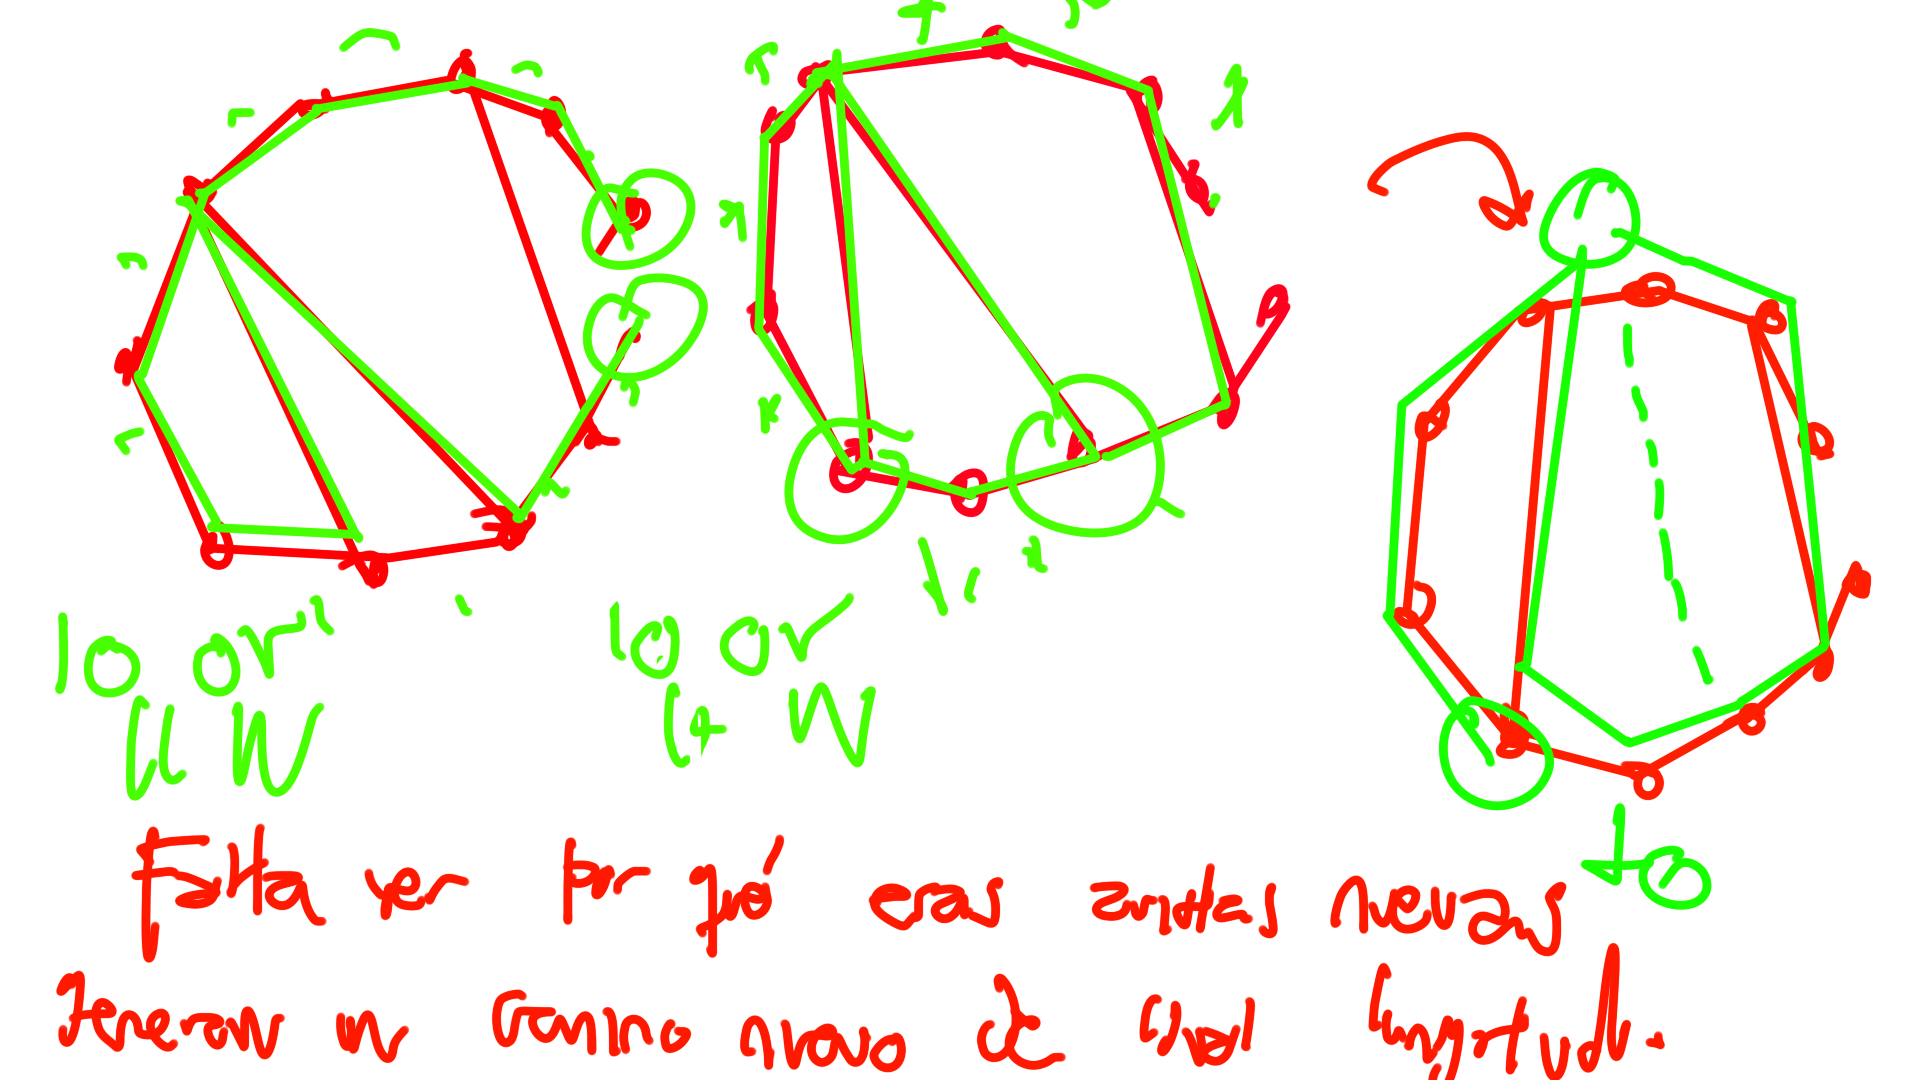 10 or
10 or
Falta ver por qué esas aristas nuevas
generan un camino nuevo de igual longitud.